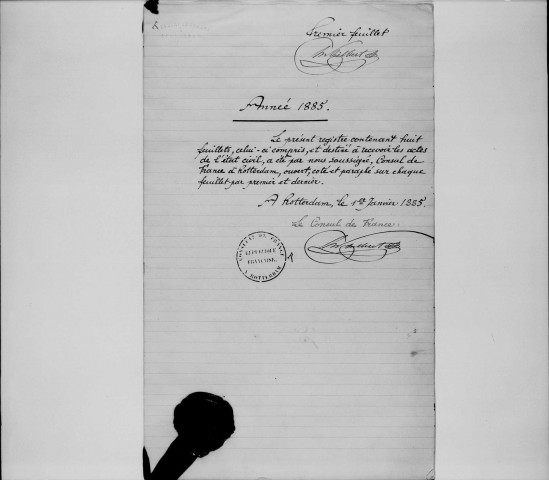 Premier feuillet
Année 1885.
Le présent registre contenant huit
feuillets, celui-ci compris, et destiné à recevoir les actes
de l'état civil, a été par nous soussigné, Consul de
France à Rotterdam, ouvert, coté et paraphé sur chaque
feuillet par premier et dernier.
A Rotterdam, le 1er Janvier 1885.
Le Consul de France.
CONSULAT DE FRANCE
RÉPUBLIQUE
FRANÇAISE.
A ROTTERDAM